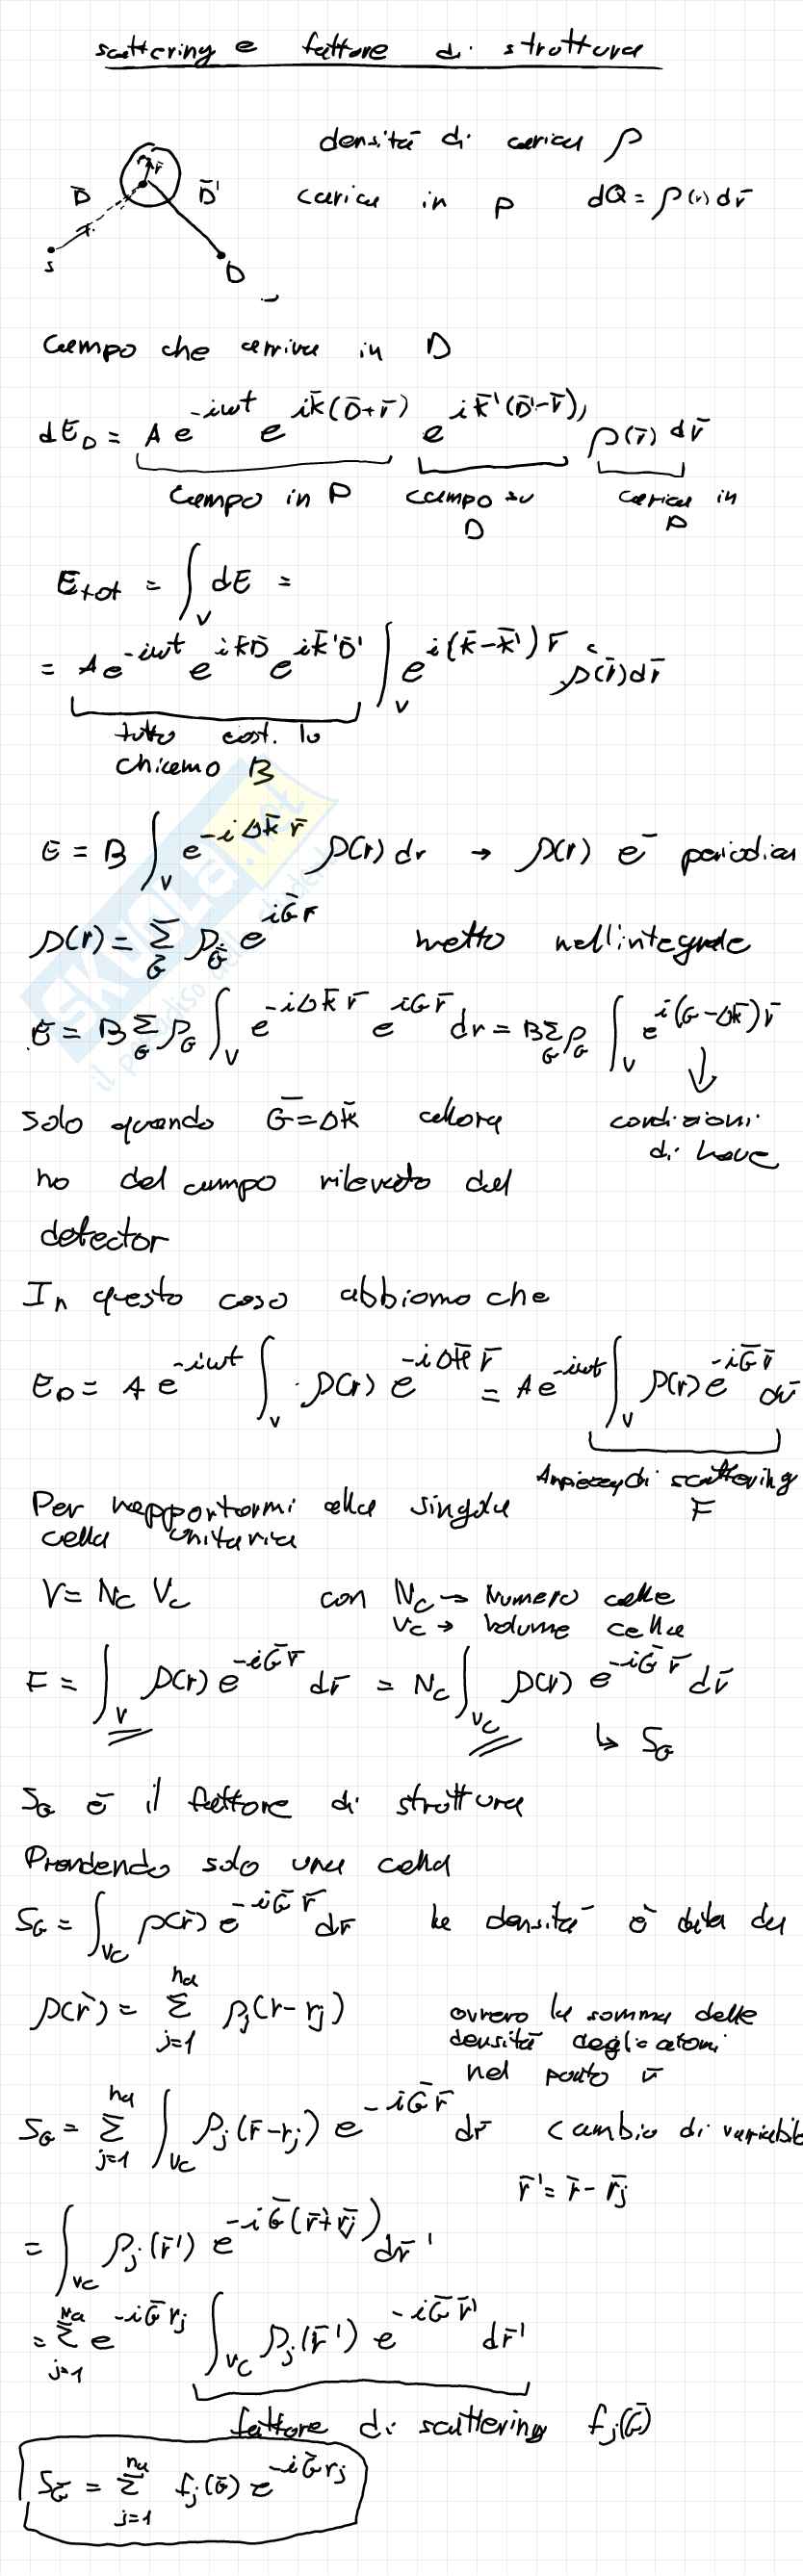 scattering e fattore di struttura
densità di carica ρ
D̄ r̄ D̄'
carica in P dQ = ρ(r) dr̄
S
D
Campo che arriva in D
dE_D = A e^{-iωt} e^{ik̄(D̄+r̄)} e^{ik̄'(D̄'-r̄)} ρ(r̄) dr̄
campo in P campo su D carica in P
E_tot = ∫_V dE =
= A e^{-iωt} e^{ik̄D̄} e^{ik̄'D̄'} ∫_V e^{i(k̄-k̄')r̄} ρ(r̄) dr̄
tutto cost. lo
chiamo B
E = B ∫_V e^{-iΔk̄ r̄} ρ(r) dr → ρ(r) è periodica
ρ(r) = Σ_Ḡ ρ_Ḡ e^{iḠr̄} metto nell'integrale
E = B Σ_G ρ_G ∫_V e^{-iΔk̄ r̄} e^{iGr̄} dr = B Σ_G ρ_G ∫_V e^{i(G-Δk̄)r̄}
Solo quando Ḡ = Δk̄ allora
condizioni
di Laue
ho del campo rilevato dal
detector
In questo caso abbiamo che
E_D = A e^{-iωt} ∫_V ρ(r) e^{-iΔk̄ r̄} = A e^{-iωt} ∫_V ρ(r) e^{-iḠr̄} dr̄
Ampiezza di scattering
F
Per rapportarmi alla singola
cella unitaria
V = N_C V_C con N_C → Numero celle
V_C → Volume cella
F = ∫_V ρ(r) e^{-iḠr̄} dr̄ = N_C ∫_{V_C} ρ(r) e^{-iḠ r̄} dr̄
↳ S_G
S_G è il fattore di struttura
Prendendo solo una cella
S_G = ∫_{V_C} ρ(r̄) e^{-iḠ r̄} dr̄ la densità è data da
ρ(r̄) = Σ_{j=1}^{n_a} ρ_j(r-r_j) ovvero la somma delle
densità degli atomi
nel punto r̄
S_G = Σ_{j=1}^{n_a} ∫_{V_C} ρ_j(r̄-r_j) e^{-iḠr̄} dr̄ cambio di variabile
r̄' = r̄ - r̄_j
= ∫_{V_C} ρ_j(r̄') e^{-iḠ(r̄+r̄_j)} dr̄'
= Σ_{j=1}^{n_a} e^{-iḠr_j} ∫_{V_C} ρ_j(r̄') e^{-iḠr̄'} dr̄'
fattore di scattering f_j(Ḡ)
S_Ḡ = Σ_{j=1}^{n_a} f_j(Ḡ) e^{-iḠr_j}
SKUOLA.net